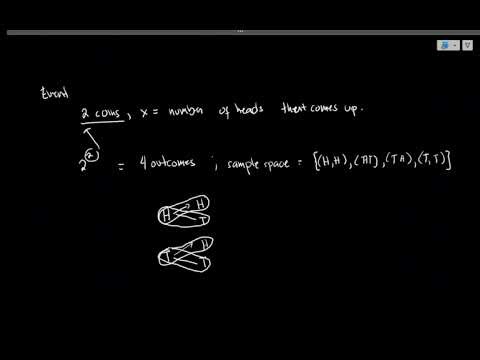 Event
2 coins, x = number of heads that comes up.
2^(2) = 4 outcomes ; sample space = [(H,H), (TAT), (TA), (T,T)]
H H
T
T H
T